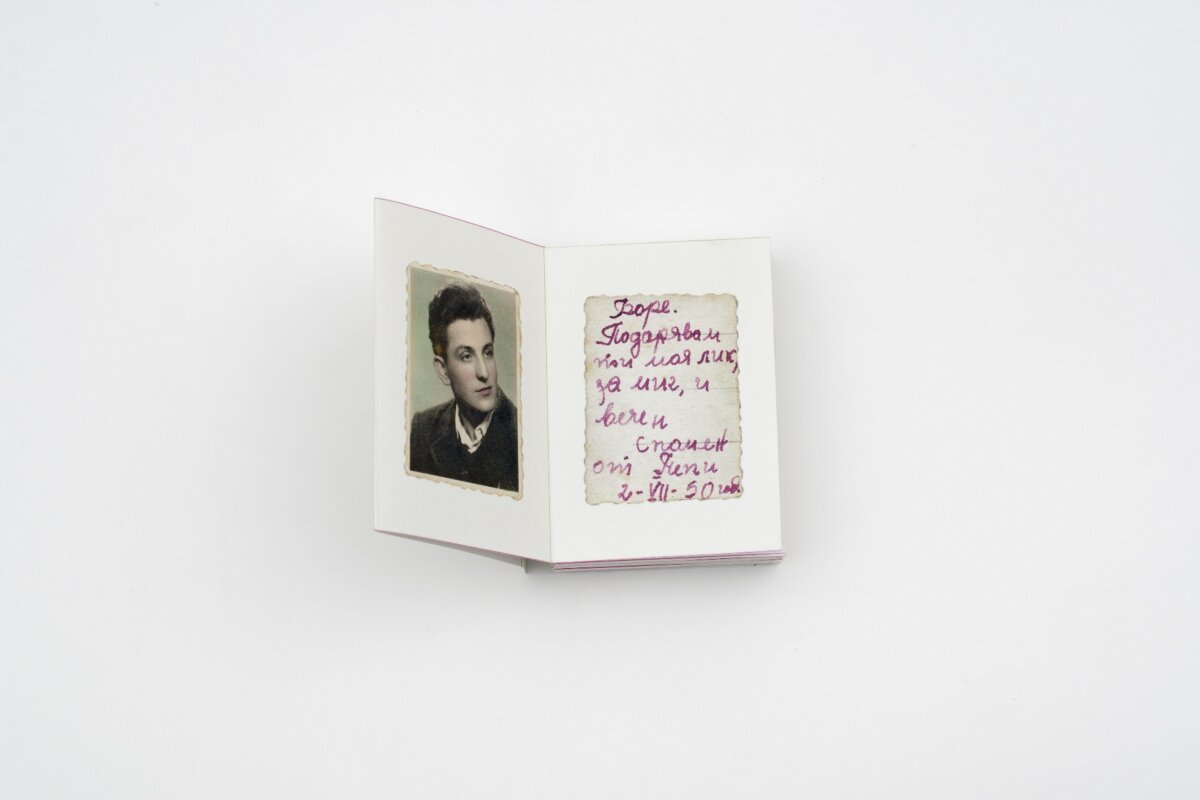 Боре.
Подарявам
ти моя лик,
за миг, и
вечен
спомен
от Пепи
2-VII-50 год